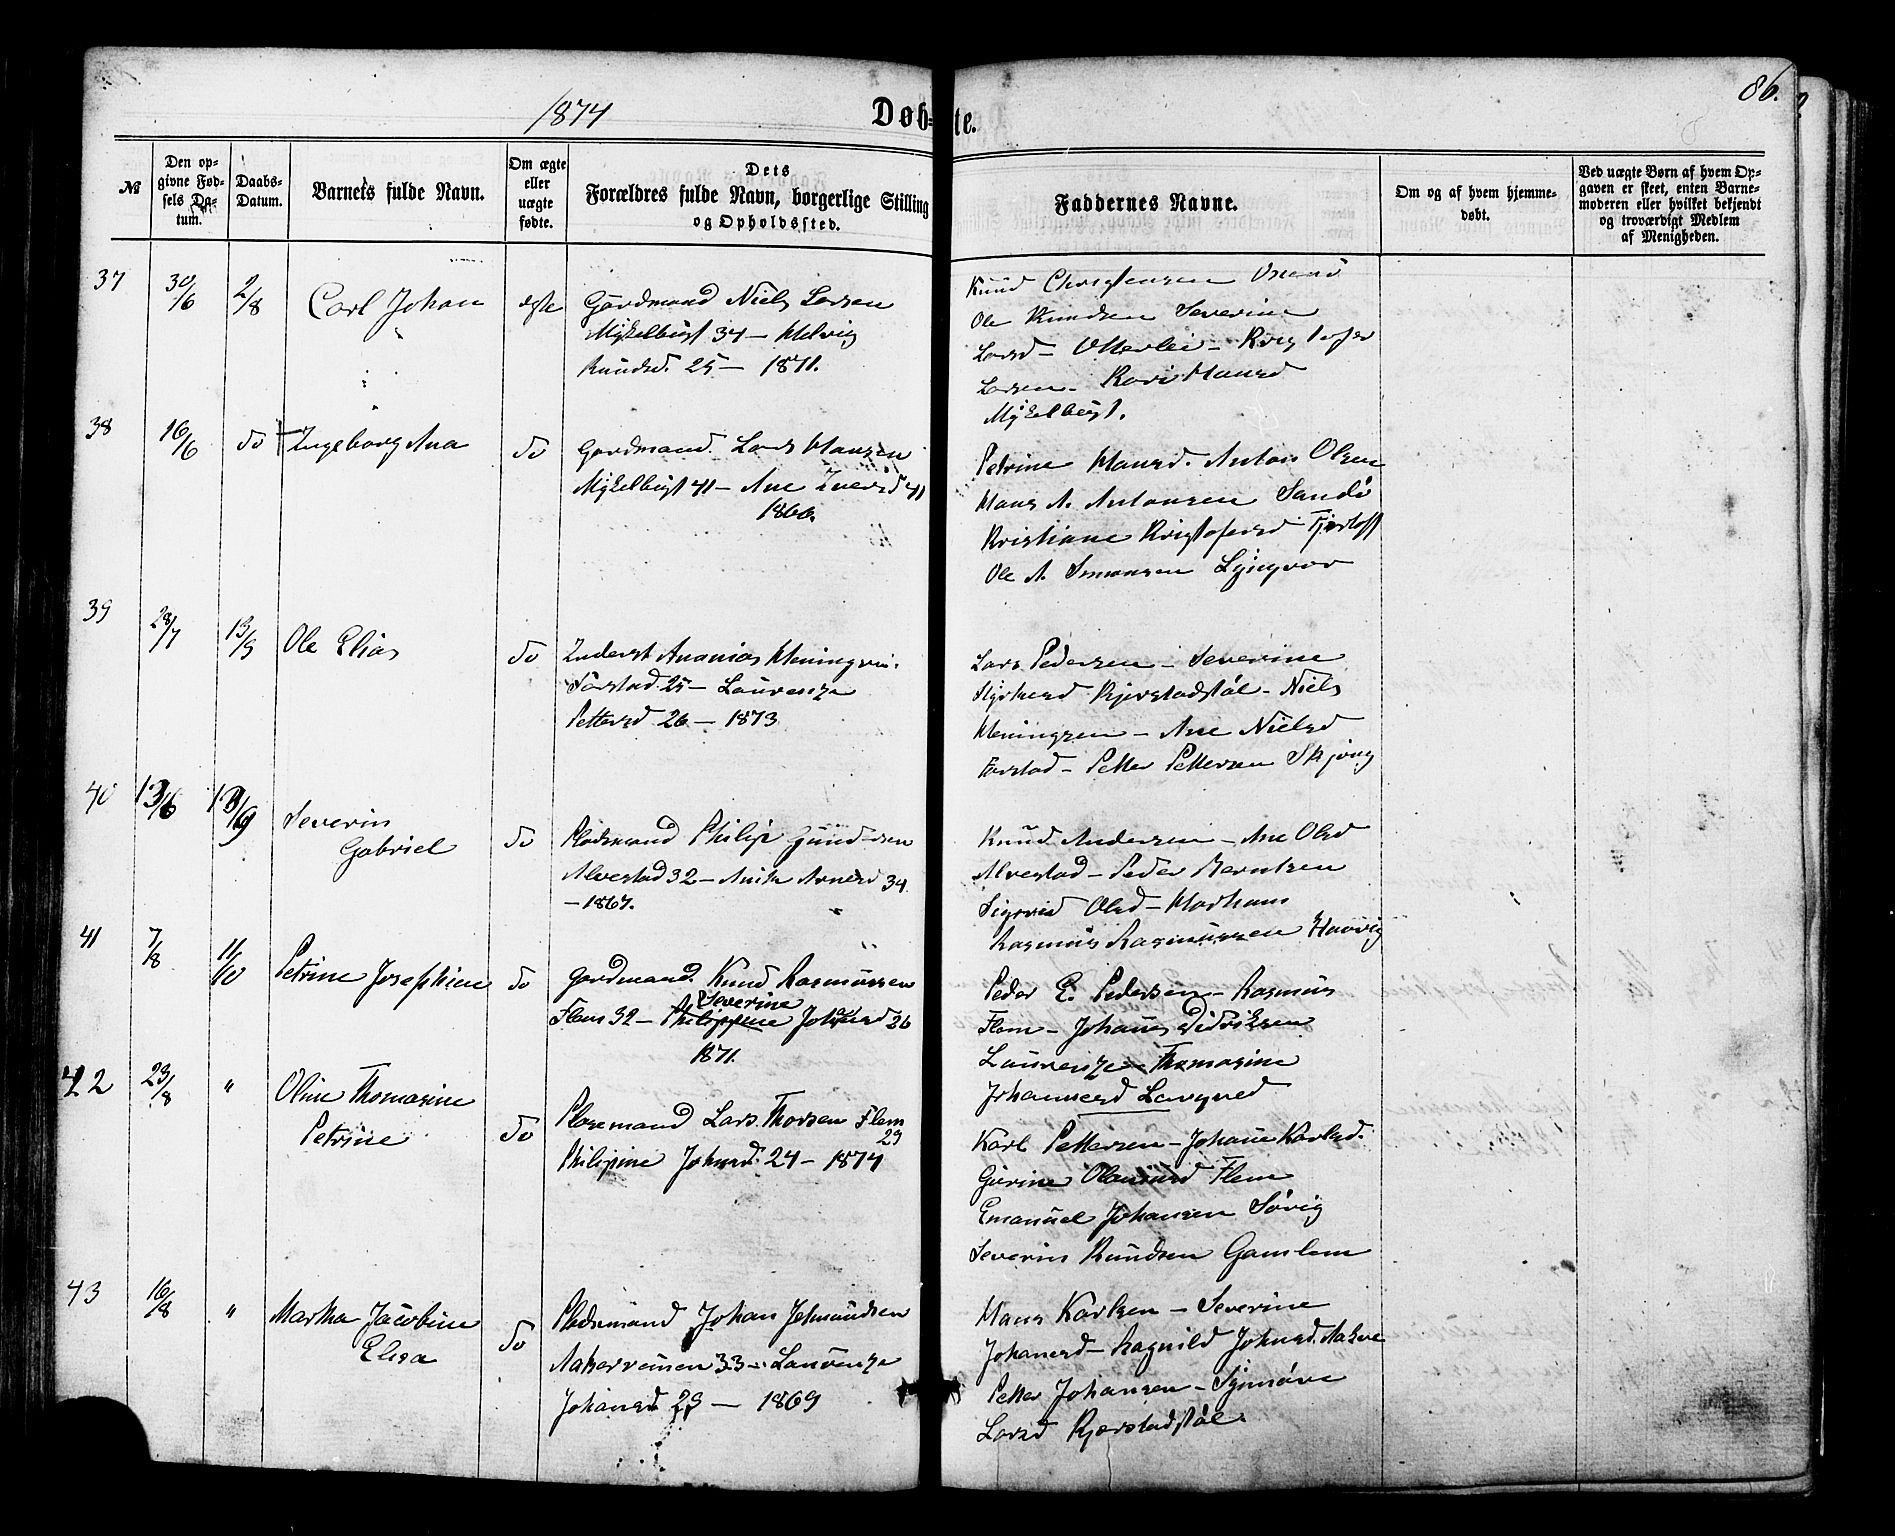 1874
Døb-te.
86.
№
Den op-
givne Fød-
sels Da-
tum.
Daabs-
Datum.
Barnets fulde Navn.
Om ægte
eller
uægte
fødte.
Dets
Forældres fulde Navn, borgerlige Stilling
og Opholdssted.
Faddernes Navne.
Om og af hvem hjemme-
døbt.
Ved uægte Børn af hvem Op-
gaven er skeet, enten Barne-
moderen eller hvilket bekjendt
og troværdigt Medlem
af Menigheden.
37 30/6 2/8 Carl Johan ægte
Gardmand Niels Larsen
Myklebust 34 – Helvig
Knudsd. 25 – 1871.
Knud Christensen
Ole Knudsen Severine
Larsd – Otterlei – Kristofer
Larsen – Kari Hansd
Myklebust.
38 16/6 do Ingeborg Ana do
Gardmand Lars Hansen
Myklebust 41 – Ane Iversd 41
1866.
Petrine Hansd. Anton Olsen
Hans A. Antonsen Sandø
Kristiane Kristofersd Fjørtoft
Ole A. Simonsen Lyngvær
39 28/7 13/9 Ole Elias do
Inderst Ananias Henningsen
Farstad 25 – Laurenze
Pettersd 26 – 1873
Lars Pedersen – Severine
Kjerstadstøl – Niels
Henningsen – Ane Nielsd
Farstad – Petter Pettersen Skjong
40 13/6 13/9 Severin
Gabriel do
Pladsmand Philip
Alvestad 32 – Anne 34
– 1867.
Knud Andersen – Ane Olsd
Alvestad – Peder Berntsen
Olsd –
Rasmus Rasmussen
41 7/8 11/10 Petrine Josephine do
Gardmand Knud Rasmussen
Severine
Flem 32 – Philippine Johansd 26
1871.
Peder E. Pedersen – Rasmus
Flem – Johannes Didriksen
Laurenze – Thomasine
Johannesd Longved
42 23/8 " Oline Thomasine
Petrine do
Pladsemand Lars Thorsen Flem
29
Philipine Johansd. 24 – 1874
Karl Pettersen – Johanne Karlsd.
Gurine Flem
Emanuel Johansen Søvig
Severin Knudsen Gamlem
43 16/8 " Martha Jacobine
Elisa do
Pladsemand Johan Jetmundsen
33 – Laurenze
Johansd 29 – 1869
Hans Karlsen – Severine
Johansd – Ragnild Johnsd.
Petter Johansen – Synnøve
Larsd Kjerstadstøl